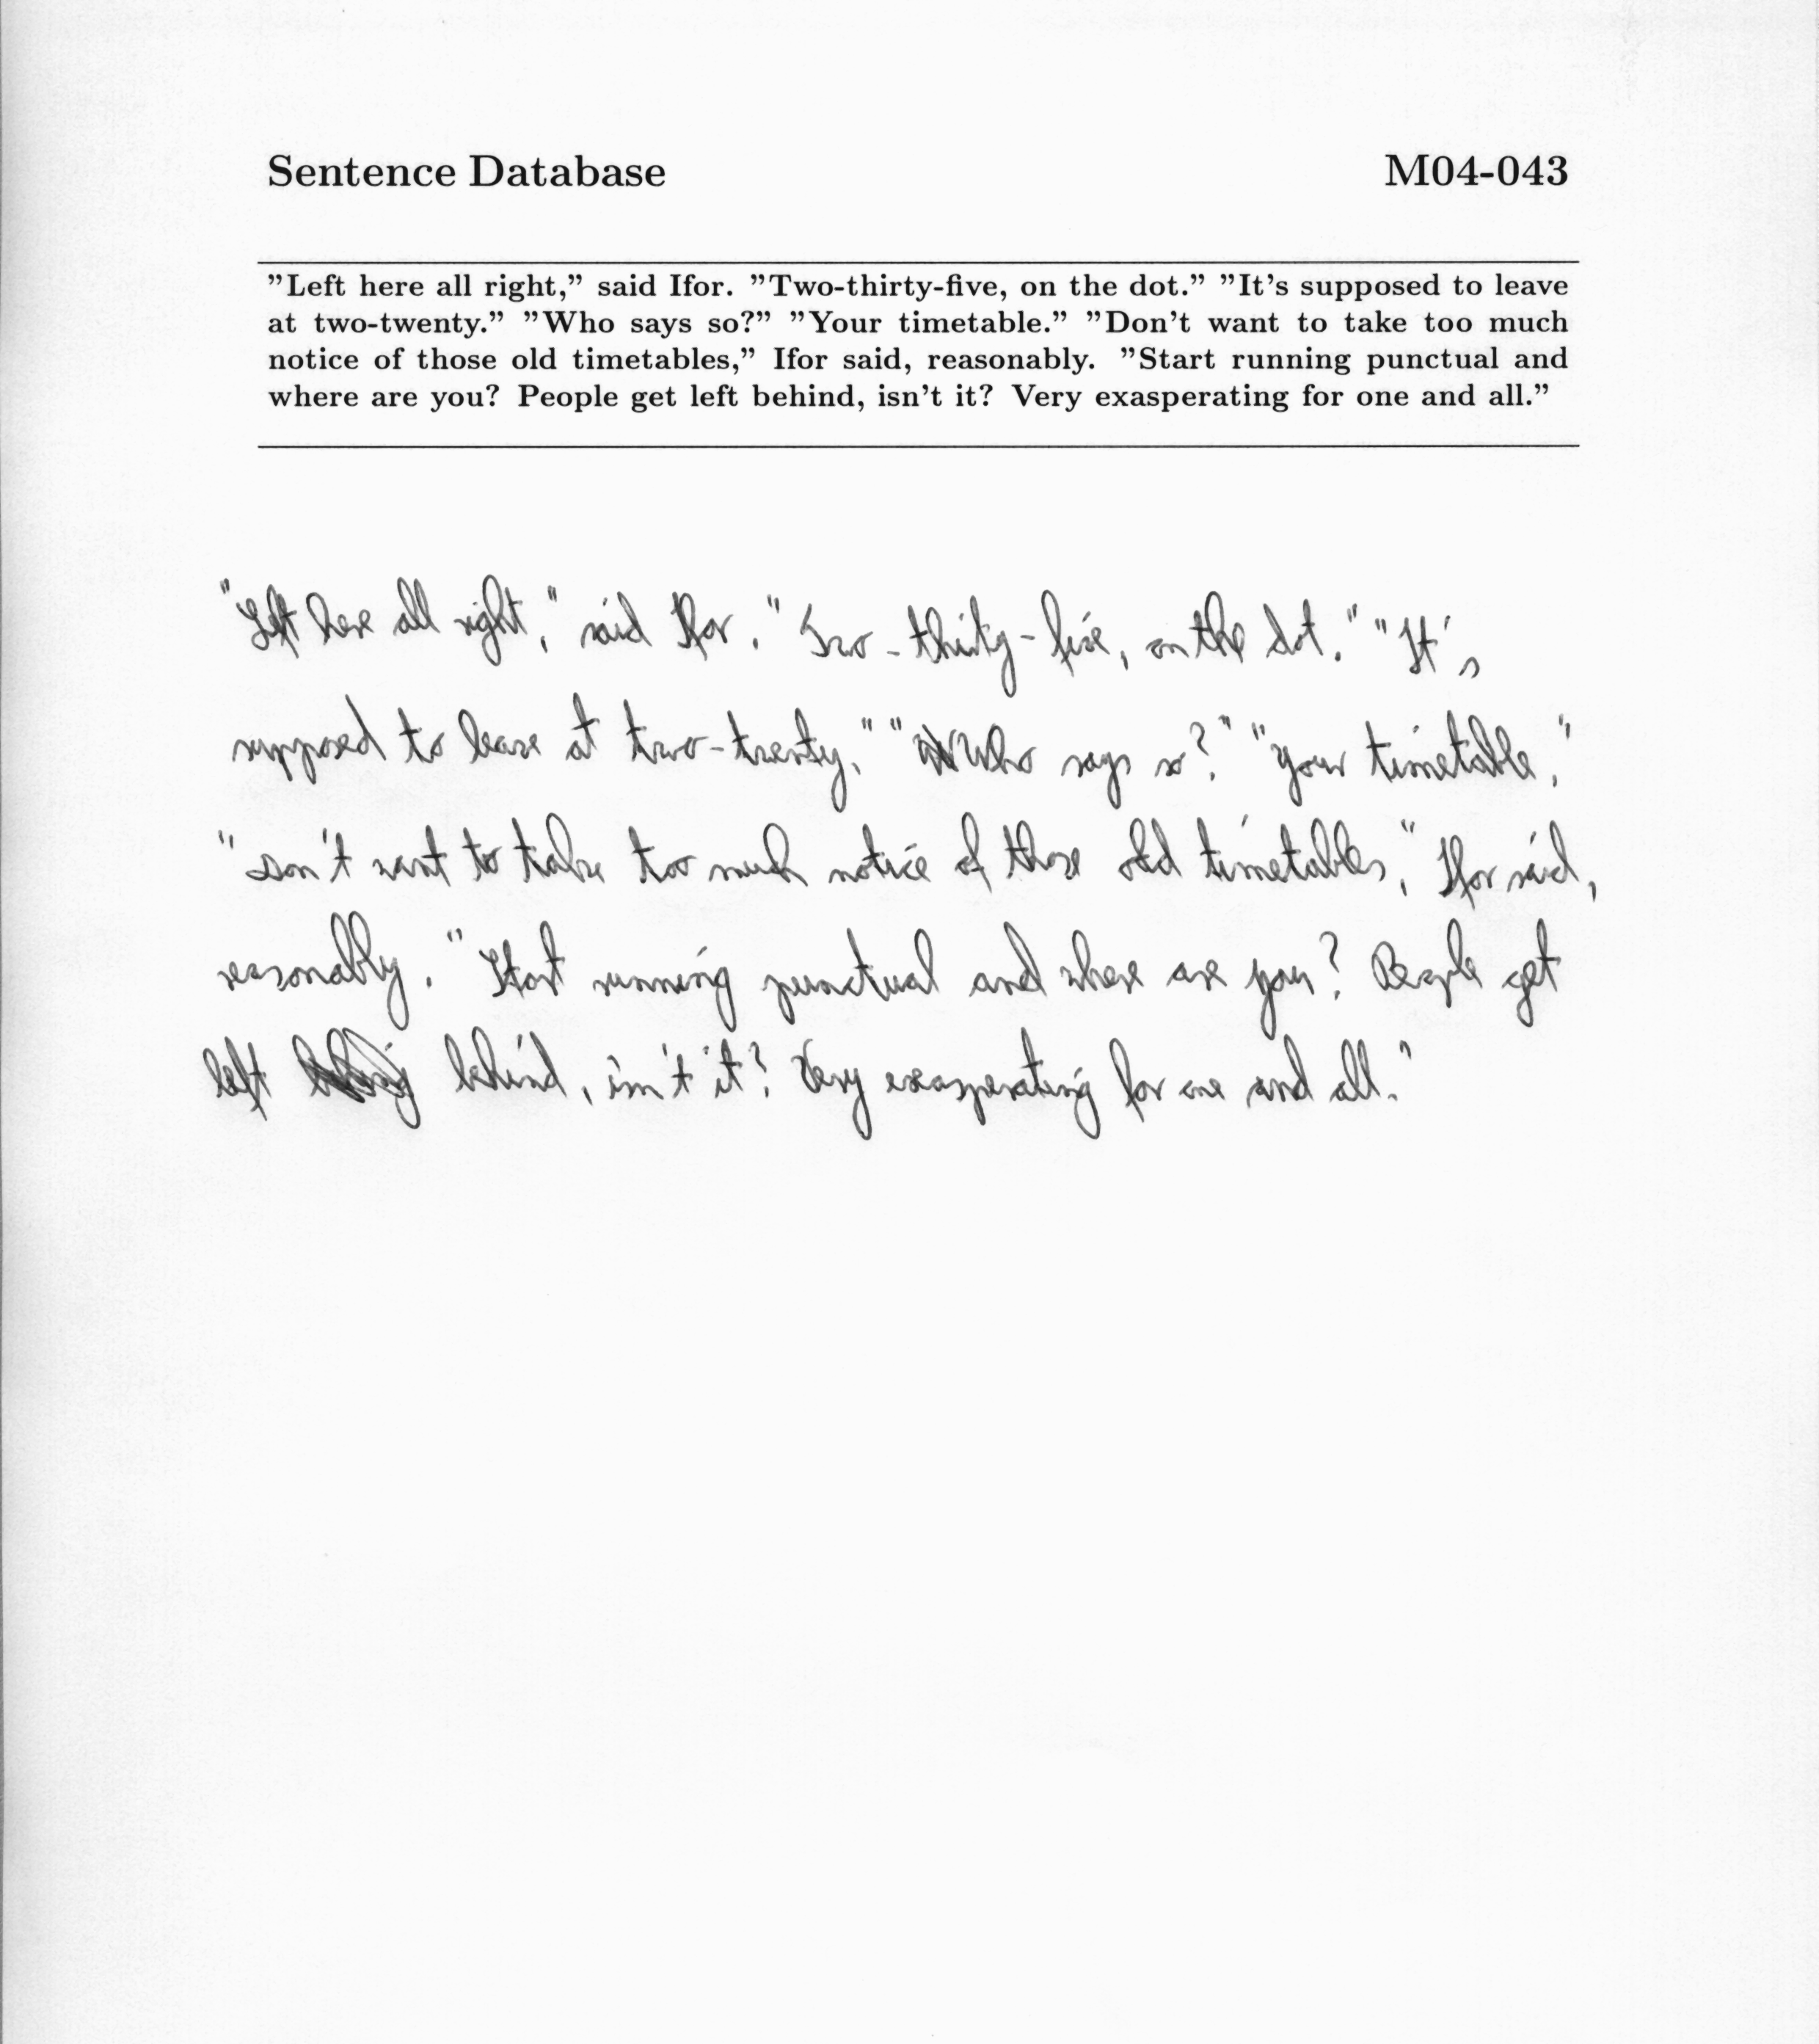 Sentence Database M04-043
"Left here all right," said Ifor. "Two-thirty-five, on the dot." "It's supposed to leave
at two-twenty." "Who says so?" "Your timetable." "Don't want to take too much
notice of those old timetables," Ifor said, reasonably. "Start running punctual and
where are you? People get left behind, isn't it? Very exasperating for one and all."
"Left here all right," said Ifor. "Two-thirty-five, on the dot." "It's
supposed to leave at two-twenty." "Who says so?" "Your timetable."
"Don't want to take too much notice of those old timetables," Ifor said,
reasonably. "Start running punctual and where are you? People get
left behind, isn't it? Very exasperating for one and all."